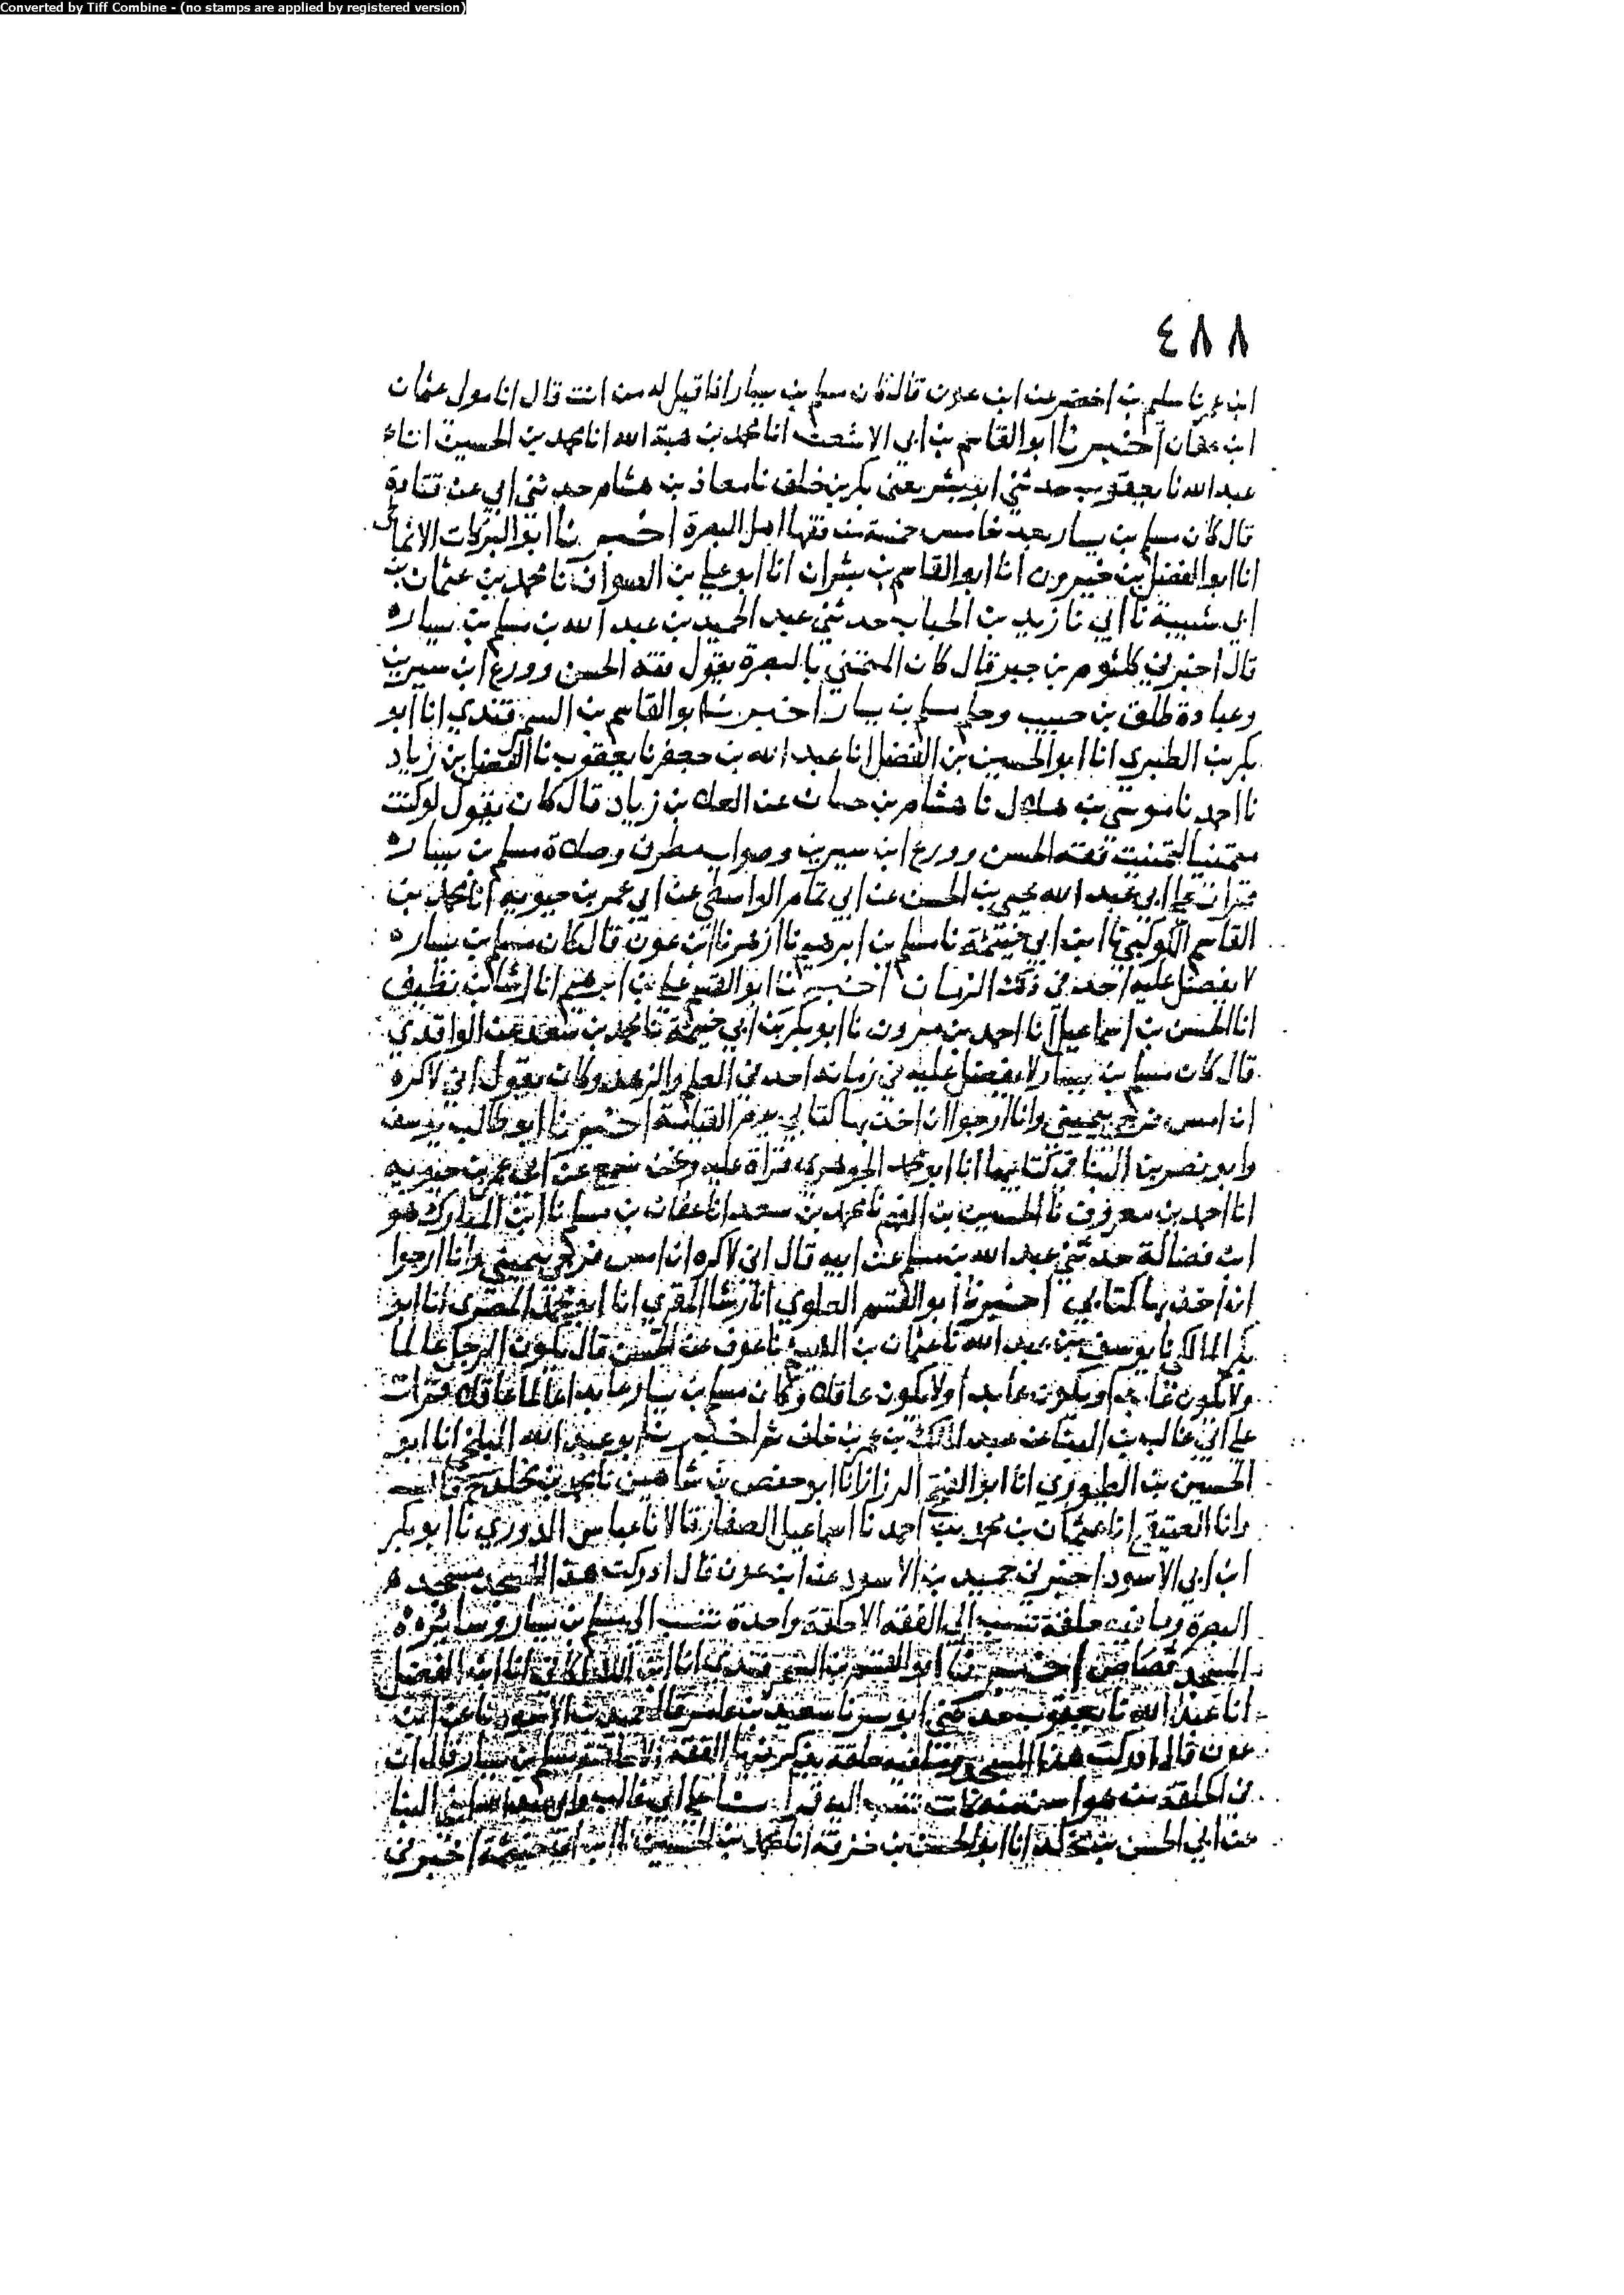 Converted by Tiff Combine - (no stamps are applied by registered version)
٤٨٨
ابن عمر نا سليم بن اخضر عن ابن عون قال كان مسلم بن يسار اذا قيل له من انت قال انا مولى عثمان
ابن عفان اخبرنا ابو القاسم بن ابي الاشعث انا محمد بن هبة الله انا محمد بن الحسين انا
عبد الله نا يعقوب حدثني ابو بشر يعني بكر بن خلف نا معاذ بن هشام حدثني ابي عن قتادة
قال كان مسلم بن يسار يعد خامس خمسة من فقها اهل البصرة اخبرنا ابو البركات الانماطي
انا ابو الفضل بن خيرون انا ابو القاسم بن بشران انا ابو علي بن الصواف نا محمد بن عثمان بن
ابي شيبة نا ابي نا زيد بن الحباب حدثني عبد الحميد بن عبد الله بن مسلم بن يسار
قال اخبرني كلثوم بن جبر قال كان المتمني بالبصرة يقول فقه الحسن وورع ابن سيرين
وعبادة طلق بن حبيب وحلم مسلم بن يسار اخبرنا ابو القاسم بن السمرقندي انا ابو
بكر بن الطبري انا ابو الحسين بن الفضل انا عبد الله بن جعفر نا يعقوب نا الفضل بن زياد
نا احمد نا موسى بن هلال نا هشام بن حسان عن العلا بن زياد قال كان يقول لو كنت
متمنيا لتمنيت فقه الحسن وورع ابن سيرين وصواب مطرف وصلاة مسلم بن يسار
قرات على ابي عبد الله يحيى بن الحسن عن ابي تمام الواسطي عن ابي عمر بن حيويه انا محمد بن
القاسم الكوكبي نا ابن ابي خيثمة نا مسلم بن ابرهيم نا ازهر نا ابن عون قال كان مسلم بن يسار
لا يفضل عليه احد في ذلك الزمان اخبرنا ابو القسم علي بن ابرهيم انا رشا بن نظيف
انا الحسن بن اسماعيل انا احمد بن مروان نا ابو بكر بن ابي خيثمة نا محمد بن سعد عن الواقدي
قال كان مسلم بن يسار لا يفضل عليه في زمانه احد في العلم والزهد وكان يقول اني لاكره
ان امس فرجي بيميني وانا ارجوا ان اخذ بها كتابي يوم القيامة اخبرنا ابو طالب يوسف
وابو نصر بن البنا في كتابيهما انا ابو محمد الجوهري قراة عليه ونحن نسمع عن ابي عمر بن حيويه
انا احمد بن معروف نا الحسين بن الفهم نا محمد بن سعد انا عفان بن مسلم نا ابن المبارك هو
ابن فضالة حدثني عبد الله بن مسلم عن ابيه قال اني لاكره ان امس فرجي بيميني وانا ارجوا
ان اخذ بها كتابي اخبرنا ابو القسم العلوي انا رشا المقري انا ابو محمد المصري انا ابو
بكر المالكي نا يوسف بن عبد الله نا عثمان بن الهيثم نا عوف عن الحسن قال يكون الرجل عالما
ولا يكون عابدا ويكون عابدا ولا يكون عاقلا وكان مسلم بن يسار عابدا عالما عاقلا قرات
على ابي غالب بن البنا عن عبد الملك بن عمر بن خلف ثم اخبرنا ابو عبد الله البلخي انا ابو
الحسين بن الطيوري انا ابو الفتح الرزاز انا ابو حفص بن شاهين نا محمد بن مخلد ح قال
وانا العتيقي انا عثمان بن محمد بن احمد نا اسماعيل الصفار قالا نا عباس الدوري نا ابو بكر
ابن ابي الاسود اخبرني حميد بن الاسود عن ابن عون قال ادركت هذا المسجد مسجد
البصرة وما فيه حلقة تنسب الى الفقه الا حلقة واحدة تنسب الى مسلم بن يسار وسائر
المسجد قصاص اخبرنا ابو القسم بن السمرقندي انا ابن اللالكائي انا ابن الفضل
انا عبد الله نا يعقوب حدثني ابو بشر نا سعيد بن عامر نا حميد بن الاسود نا عن ابن
عون قال ادركت هذا المسجد وما فيه حلقة يذكر فيها الفقه الا حلقة مسلم بن يسار قال ان
في الحلقة من هو اسن منه كانت تنسب اليه قرات على ابي غالب وابي عبد الله ابني البنا
عن ابي الحسن بن مخلد انا ابو الحسن بن خزفة انا محمد بن الحسين نا ابن ابي خيثمة اخبرني